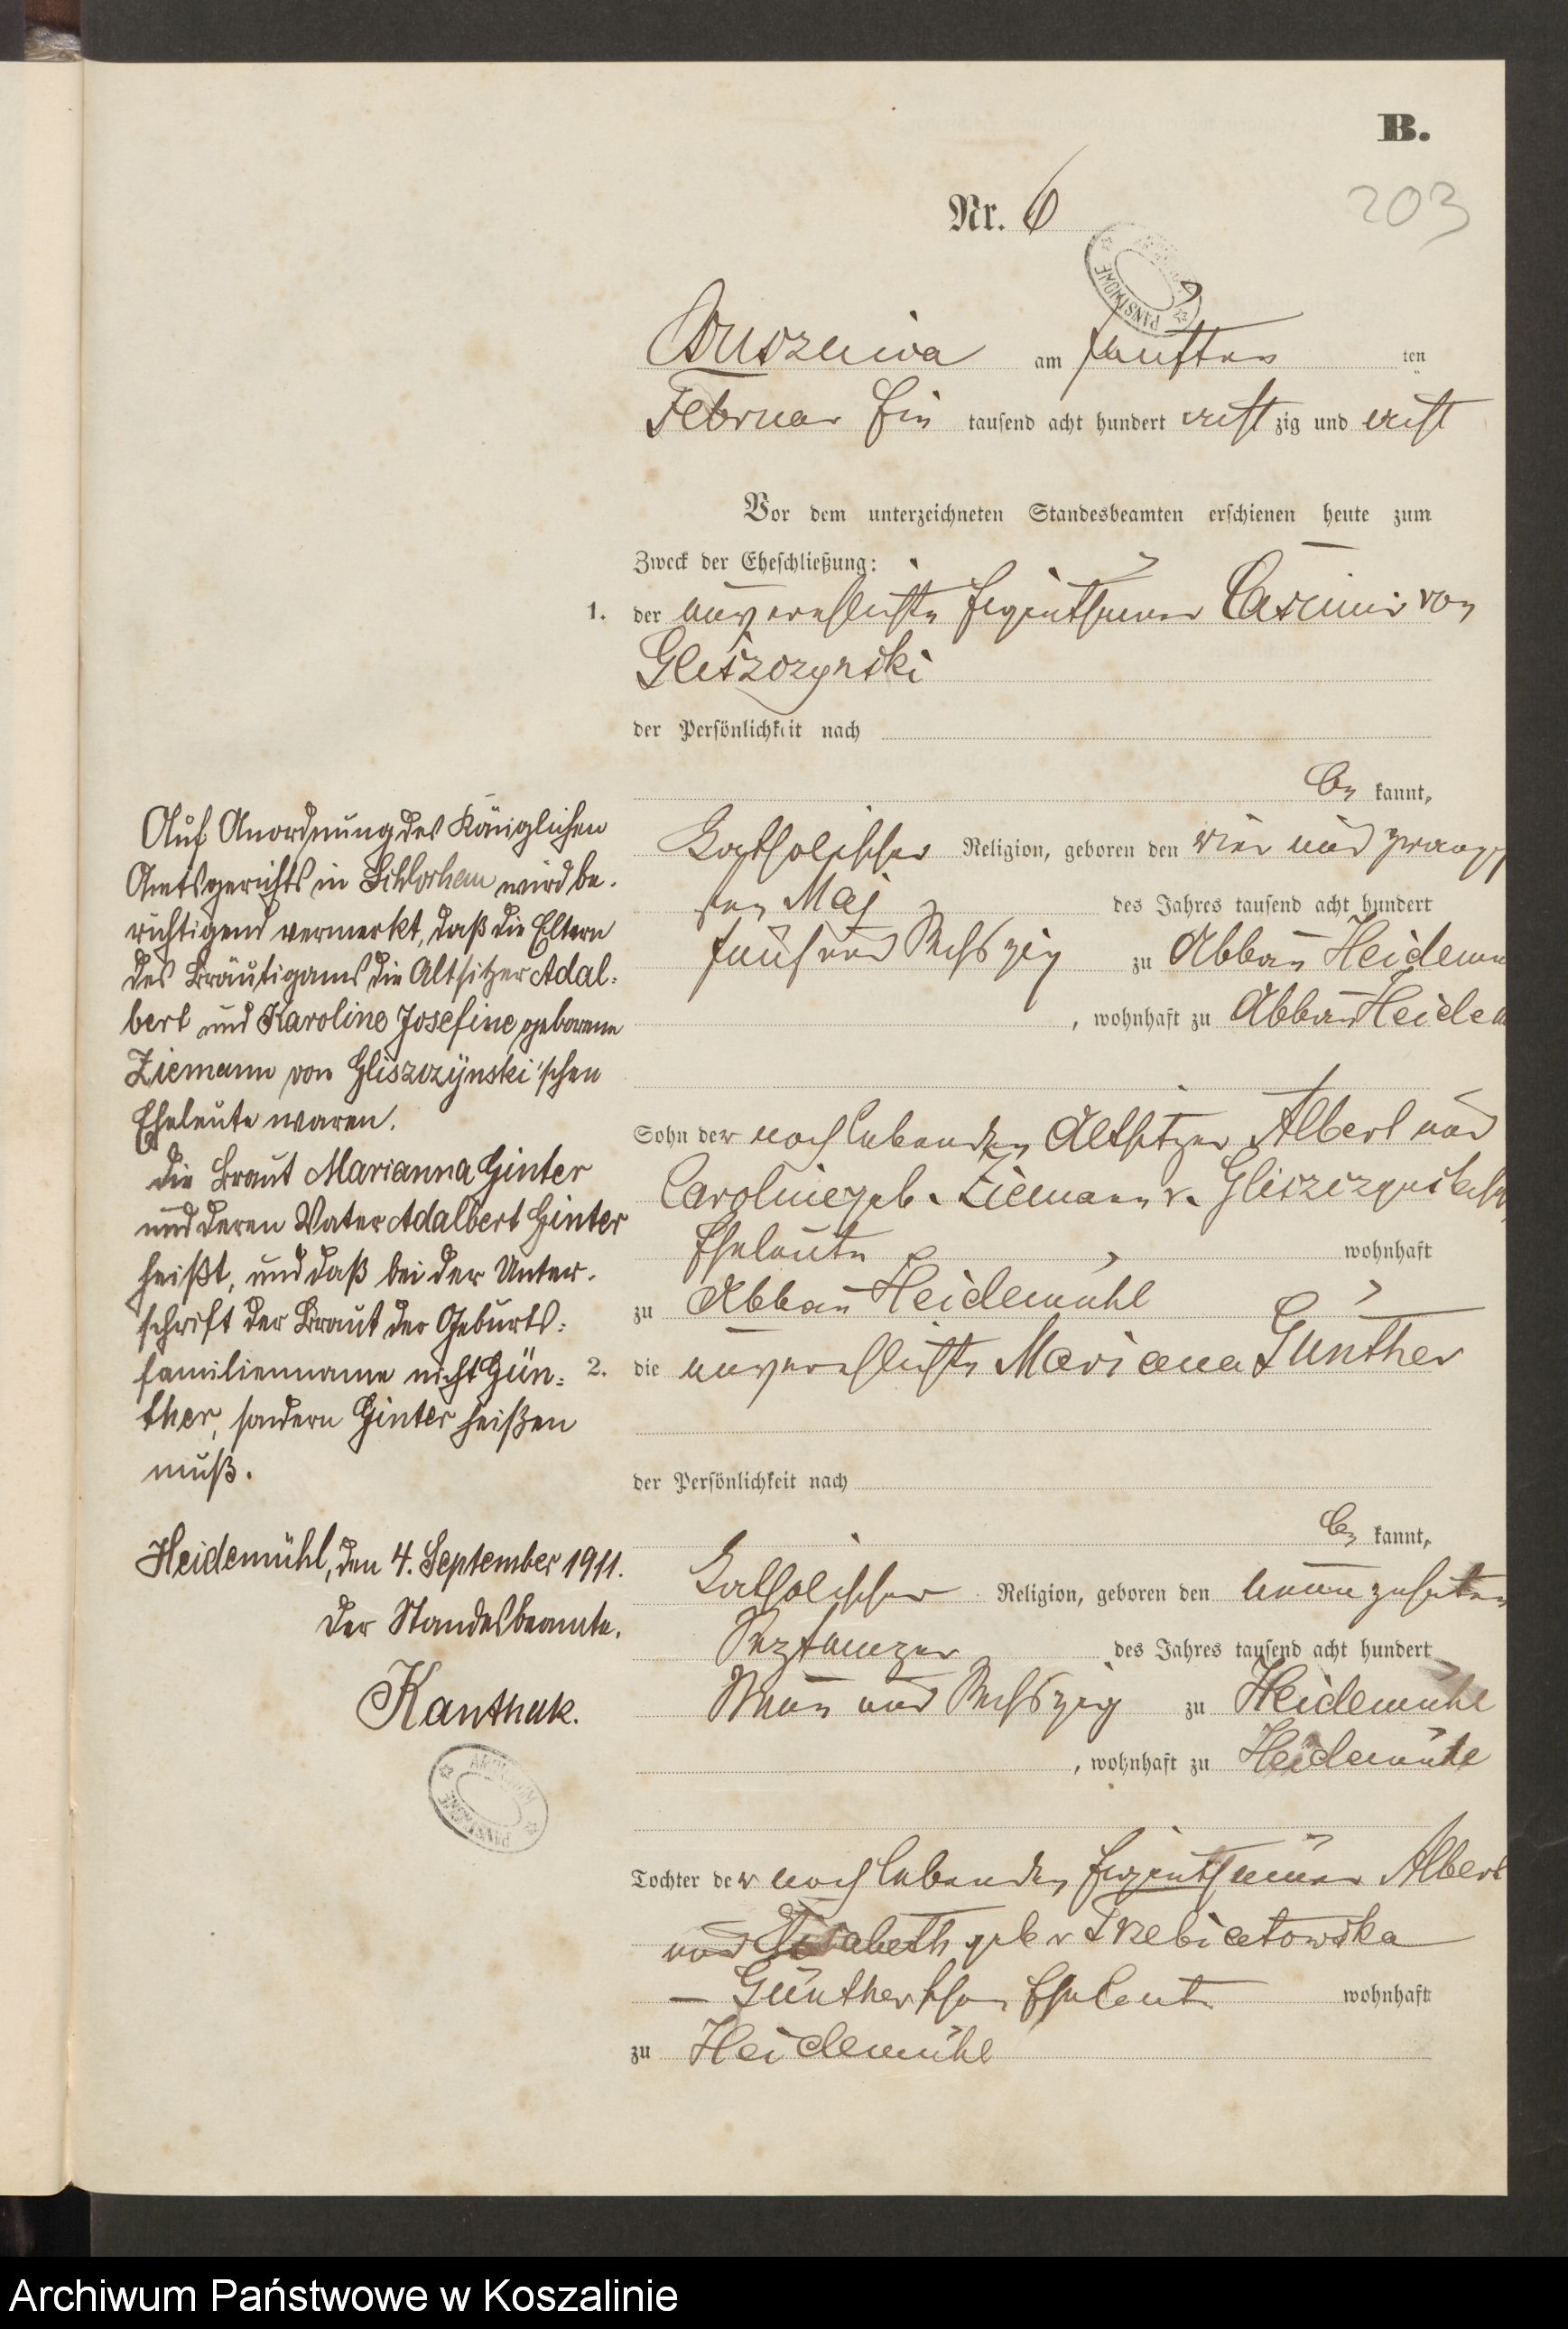 B.
203
Nr. 6
PAŃSTWOWE
am fünften ten
Februar Ein tausend acht hundert acht zig und acht
Vor dem unterzeichneten Standesbeamten erschienen heute zum
Zweck der Eheschließung:
1. der unverehelichte Eigenthümer Casimir von
Gliszczynski
der Persönlichkeit nach
be kannt,
Katholischer Religion, geboren den vier und zwanzig
sten Maj des Jahres tausend acht hundert
fünf und Sechszig zu Abbau Heidemü
, wohnhaft zu Abbau Heidem
Sohn der noch lebenden Altsitzer Albert und
Caroline geb. Ziemann v. Gliszczynskischen
Eheleute wohnhaft
zu Abbau Heidemühl
2. die unverehelichte Mariana Günther
der Persönlichkeit nach
be kannt,
Katholischer Religion, geboren den neunzehnten
des Jahres tausend acht hundert
Neun und Sechszig zu Heidemühl
, wohnhaft zu Heidemühl
Tochter der noch lebenden Eigenthümer Albert
und Elisabeth geb v Trzebiatowska
– Güntherschen Eheleute wohnhaft
zu Heidemühl
Auf Anordnung des Königlichen
Amtsgerichts in Schlochau wird be-
richtigend vermerkt, daß die Eltern
des Bräutigams die Altsitzer Adal-
bert und Karoline Josefine geborene
Ziemann von Gliszczynski'schen
Eheleute waren.
die Braut Marianna Ginter
und deren Vater Adalbert Ginter
heißt, und daß bei der Unter-
schrift der Braut der Geburts-
familienname nicht Gün-
ther, sondern Ginter heißen
muß.
Heidemühl, den 4. September 1911.
Der Standesbeamte.
Kanthak.
ARCHIWUM PAŃSTWOWE
Archiwum Państwowe w Koszalinie